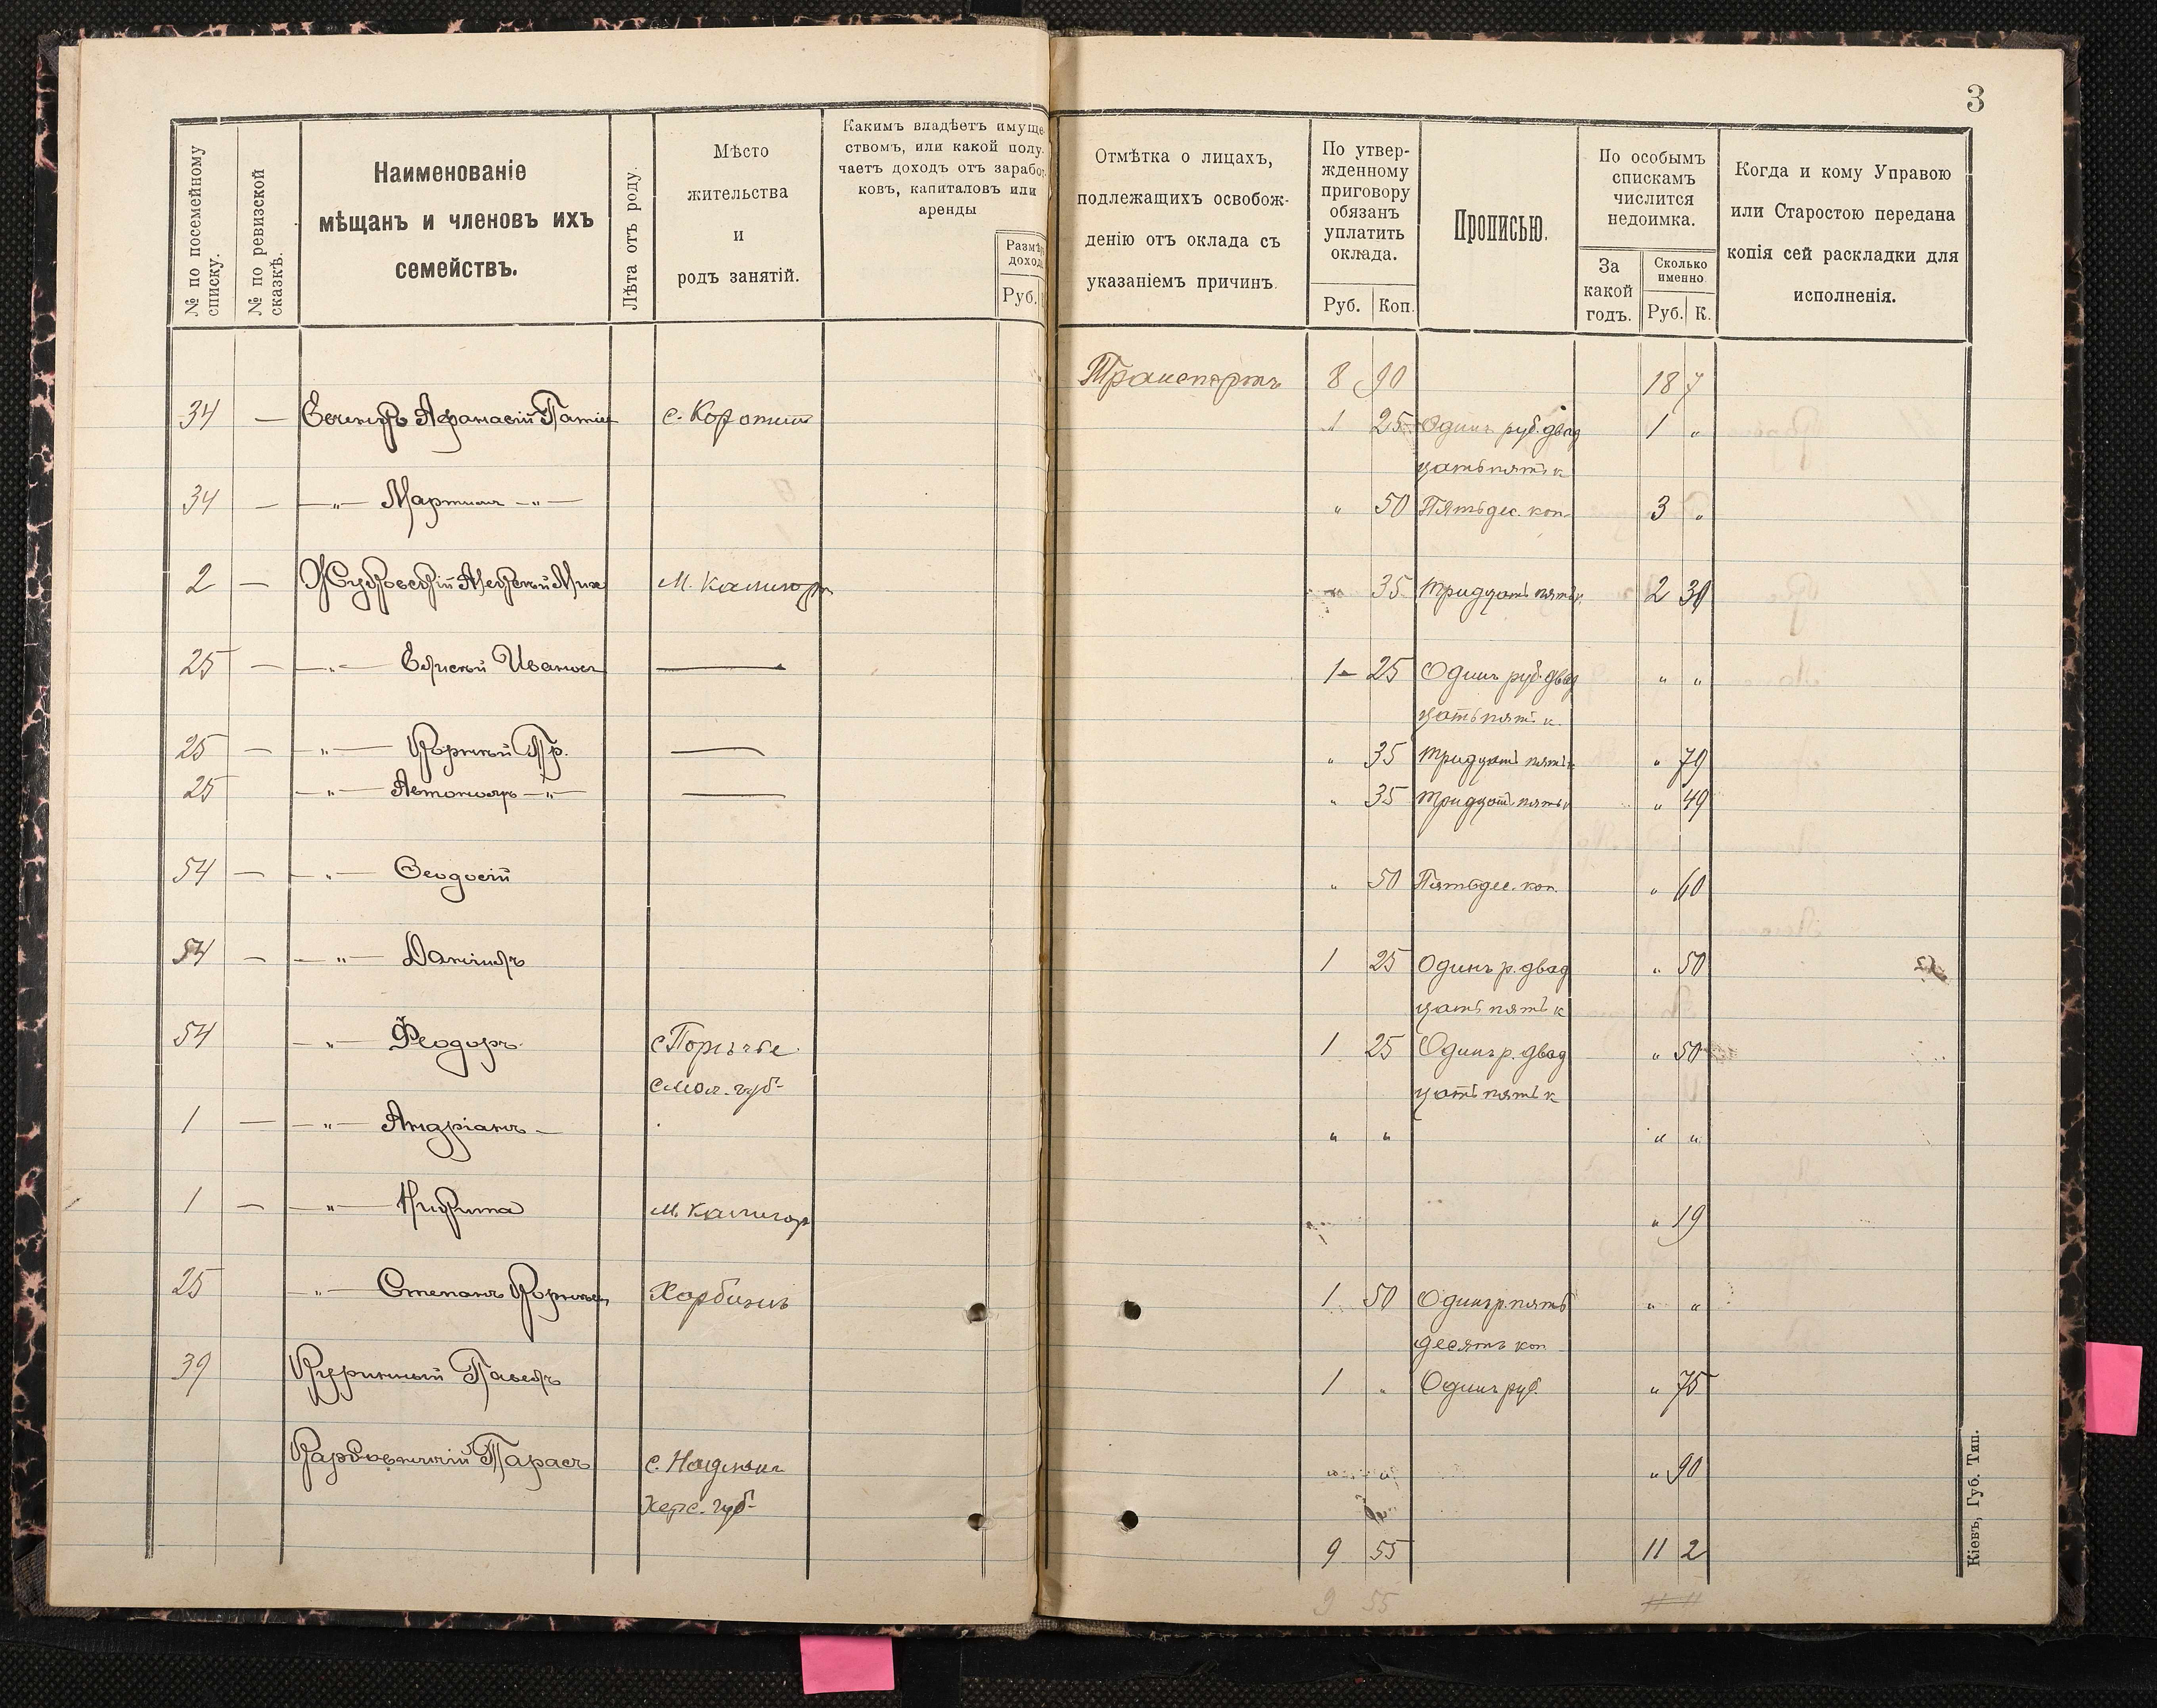 3
№ по посемейному списку.
№ по ревизской сказкѣ.
Наименованіе
мѣщанъ и членовъ ихъ
семействъ.
Лѣта отъ роду.
Мѣсто
жительства
и
родъ занятій.
Какимъ владѣетъ имуще-
ствомъ, или какой полу-
чаетъ доходъ отъ заработ-
ковъ, капиталовъ или
аренды
Размѣръ
дохода
Руб.
Отмѣтка о лицахъ,
подлежащихъ освобож-
денію отъ оклада съ
указаніемъ причинъ.
По утвер-
жденному
приговору
обязанъ
уплатить
оклада.
Руб. Коп.
Прописью.
По особымъ
спискамъ
числится
недоимка.
За
какой
годъ.
Сколько
именно.
Руб. К.
Когда и кому Управою
или Старостою передана
копія сей раскладки для
исполненія.
Транспортъ 8 90 18 7
34 — Афанасій с. 1 25 Одинъ руб. двад 1 "
цать пять к
34 — — " — Мартинъ — " — " 50 Пятьдес. коп. 3 "
2 — М. Калигор 35 Тридцать пять к. 2 30
25 — — " — Иванов 1 25 Одинъ руб. двад " "
цать пят. к.
25 — — " — Корній Гр. " 35 Тридцать пять к " 79
25 — " — Автономъ — " — " 35 Тридцат. пять к " 49
54 — — " — Ѳеодосій " 50 Пятьдес. коп. " 60
54 — — " — Даніилъ 1 25 Одинъ р. двад " 50
цать пять к
54 — " — Ѳеодоръ с Поречье 1 25 Одинъ р. двад " 50
Смол. губ. цать пять к
1 — — " — Андріанъ — " " " "
1 — — " — Никита м. Калигор " 19
25 " — Степанъ Корніев Харбинъ 1 50 Одинъ р. пять " "
десять коп
39 Куринный Павелъ 1 " Одинъ руб. " 75
Тарасъ с. " 90
Херс. губ.
9 55 11 2
9 55
Кіевъ, Губ. Тип.